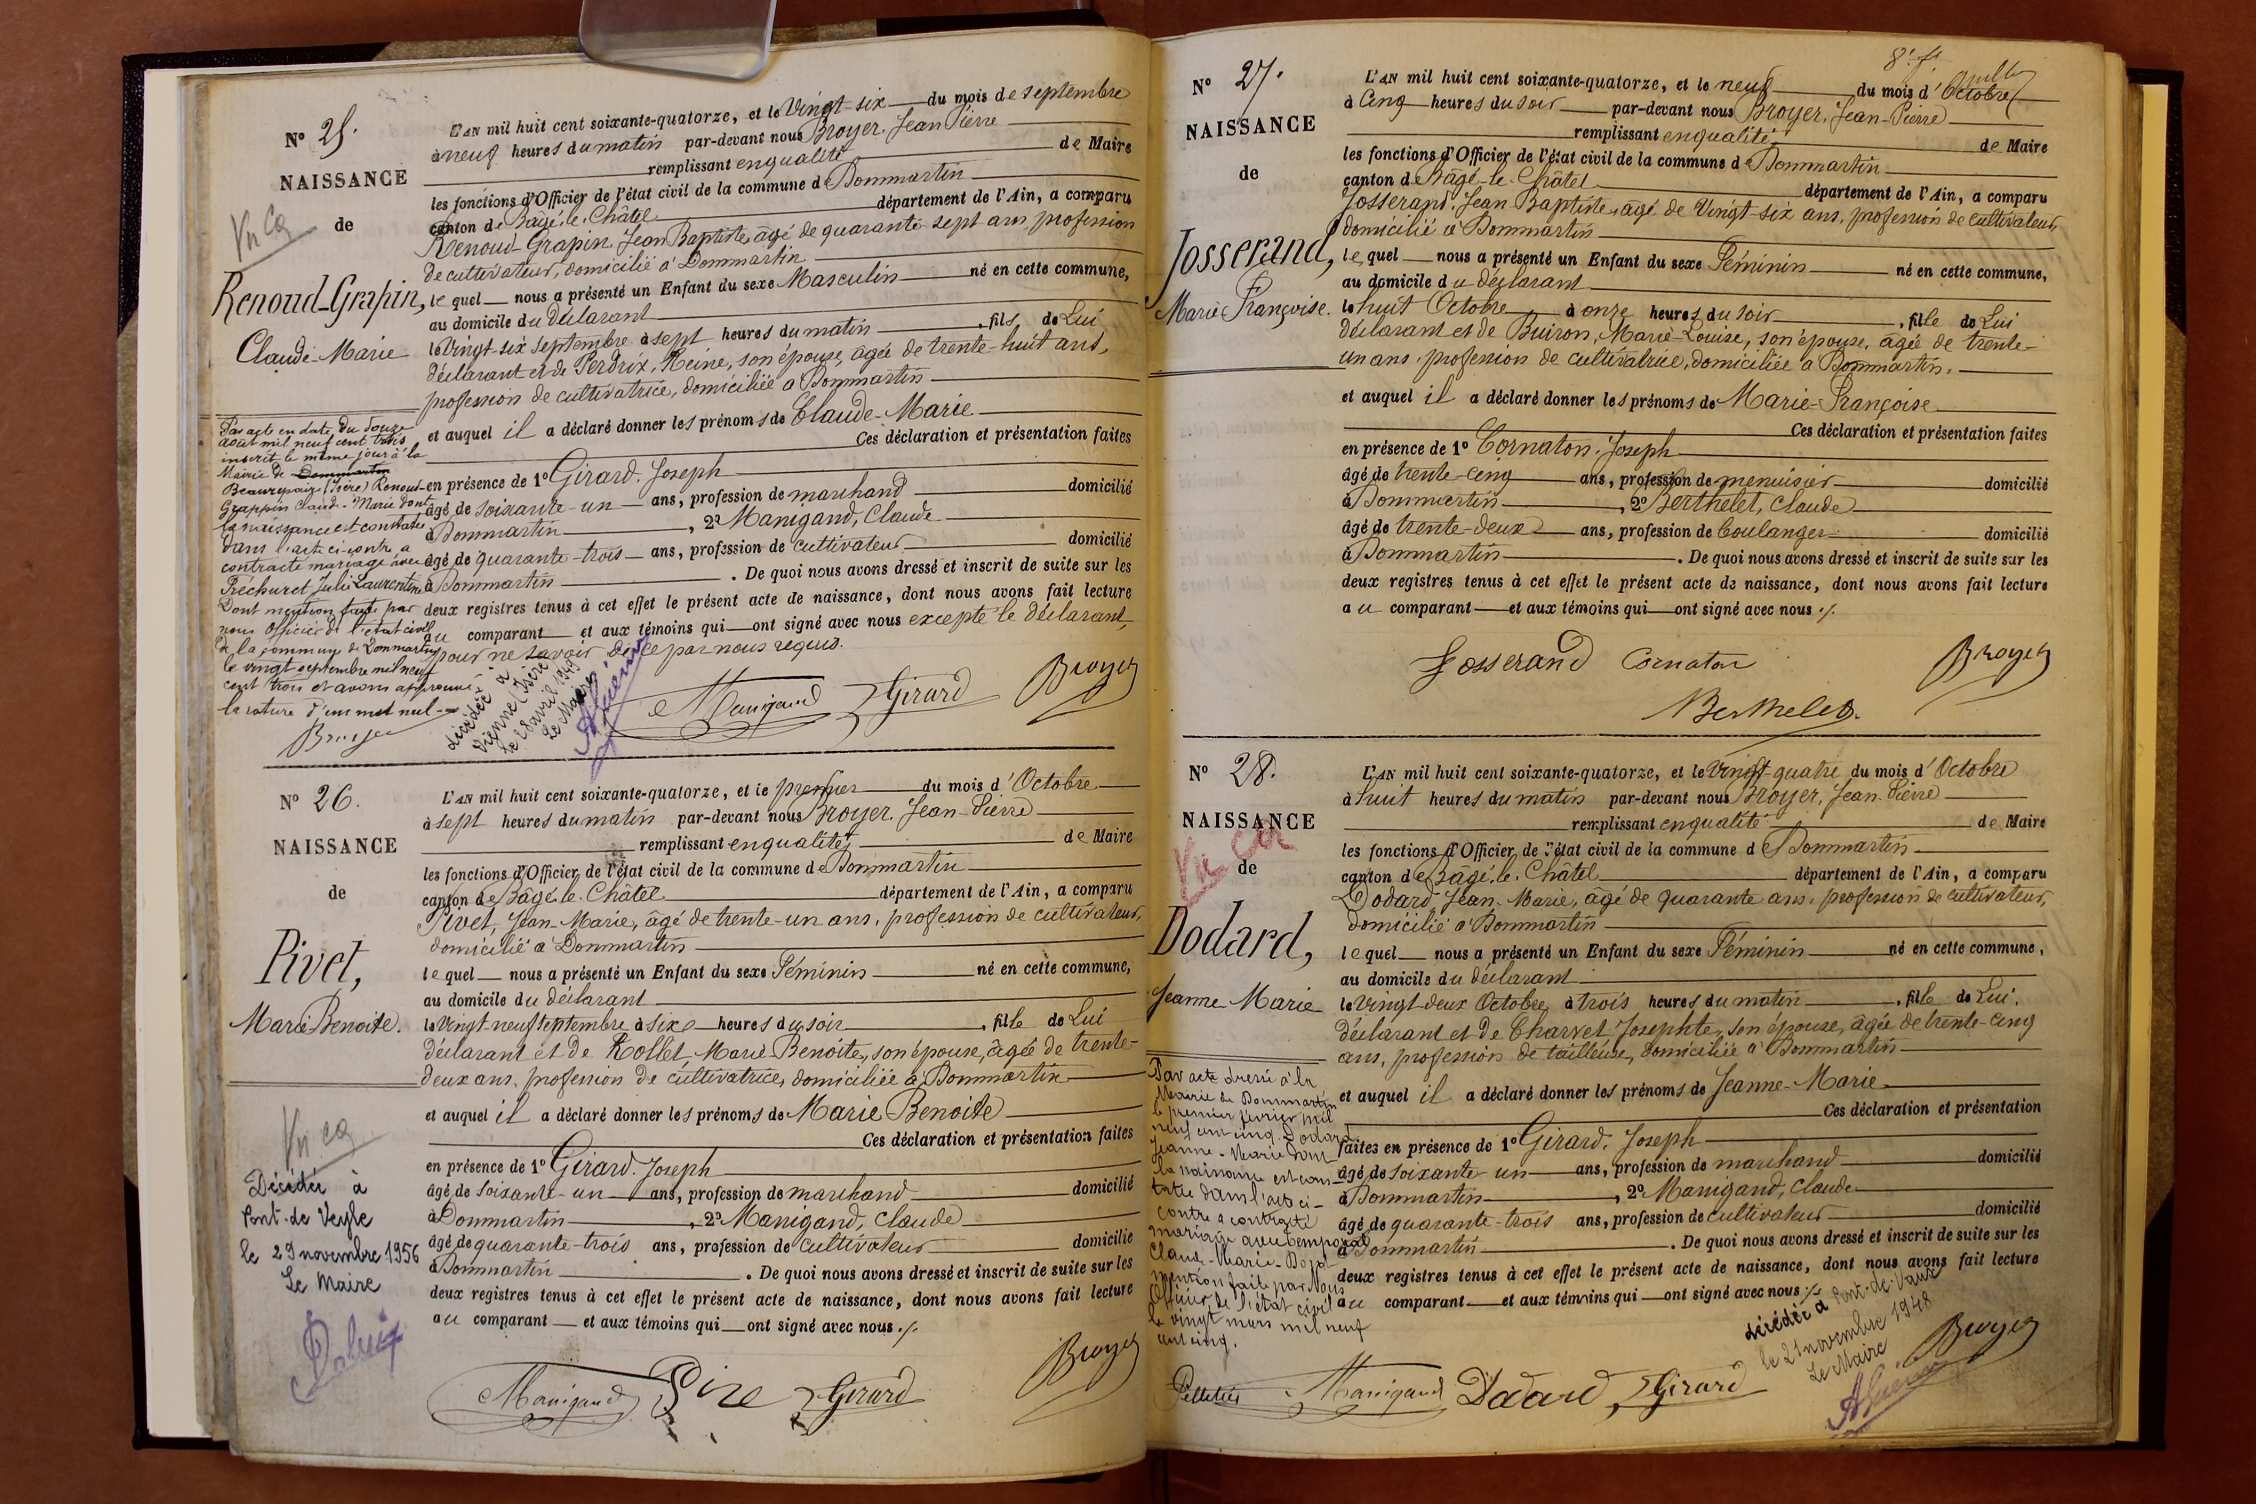 N° 25.
NAISSANCE
de
Vu Ca
Renoud-Grapin,
Claude-Marie
L'AN mil huit cent soixante-quatorze, et le Vingt-six du mois de septembre
à neuf heures du matin par-devant nous Broyer, Jean Pierre
remplissant en qualité de Maire
les fonctions d'Officier de l'état civil de la commune de Dommartin
canton de Bâgé-le-Châtel département de l'Ain, a comparu
Renoud-Grapin, Jean Baptiste, âgé de quarante-sept ans, profession
de cultivateur, domicilié à Dommartin
le quel nous a présenté un Enfant du sexe Masculin né en cette commune,
au domicile du déclarant
le Vingt-six septembre à sept heures du matin, fils de Lui
déclarant et de Perdrix, Reine, son épouse, âgée de trente-huit ans,
profession de cultivatrice, domiciliée à Dommartin
et auquel il a déclaré donner les prénoms de Claude-Marie
Ces déclaration et présentation faites
en présence de 1° Girard, Joseph
âgé de soixante-un ans, profession de marchand domicilié
à Dommartin, 2° Manigand, Claude
âgé de quarante-trois ans, profession de cultivateur domicilié
à Dommartin. De quoi nous avons dressé et inscrit de suite sur les
deux registres tenus à cet effet le présent acte de naissance, dont nous avons fait lecture
au comparant et aux témoins qui ont signé avec nous excepté le déclarant,
pour ne savoir de ce par nous requis.
Manigand Girard Broyer
Par acte en date du douze
août mil neuf cent trois
inscrit le même jour à la
Mairie de Dommartin
Beaurepaire (Isère) Renoud-
Grappin Claude-Marie dont
la naissance est constatée
dans l'acte ci-contre a
contracté mariage avec
Réchuret Julie Laurentine
Dont mention faite par
nous Officier de l'état civil
de la commune de Dommartin
le vingt septembre mil neuf
cent trois et avons approuvé
la rature d'un mot nul
Broyer
décédée à
Vienne (Isère)
le 28 avril 1949
Le Maire
N° 26.
NAISSANCE
de
Pivet,
Marie Benoite.
L'AN mil huit cent soixante-quatorze, et le premier du mois d'Octobre
à sept heures du matin par-devant nous Broyer, Jean-Pierre
remplissant en qualité de Maire
les fonctions d'Officier de l'état civil de la commune de Dommartin
canton de Bâgé-le-Châtel département de l'Ain, a comparu
Pivet, Jean-Marie, âgé de trente-un ans, profession de cultivateur,
domicilié à Dommartin
le quel nous a présenté un Enfant du sexe Féminin né en cette commune,
au domicile du déclarant
le Vingt neuf septembre à six heures du soir, fille de Lui
déclarant et de Rollet Marie-Benoite, son épouse, âgée de trente-
deux ans, profession de cultivatrice, domiciliée à Dommartin
et auquel il a déclaré donner les prénoms de Marie Benoite
Ces déclaration et présentation faites
en présence de 1° Girard, Joseph
âgé de soixante-un ans, profession de marchand domicilié
à Dommartin, 2° Manigand, Claude
âgé de quarante-trois ans, profession de cultivateur domicilié
à Dommartin. De quoi nous avons dressé et inscrit de suite sur les
deux registres tenus à cet effet le présent acte de naissance, dont nous avons fait lecture
au comparant et aux témoins qui ont signé avec nous ./.
Manigand Girard Broyer
Vu ca
Décédée à
Pont-de-Veyle
le 29 novembre 1956
Le Maire
N° 27.
NAISSANCE
de
Josserand,
Marie Françoise.
L'AN mil huit cent soixante-quatorze, et le neuf du mois d'Octobre
à Cinq heures du soir par-devant nous Broyer, Jean-Pierre
remplissant en qualité de Maire
les fonctions d'Officier de l'état civil de la commune de Dommartin
canton de Bâgé-le-Châtel département de l'Ain, a comparu
Josserand, Jean Baptiste, âgé de Vingt-six ans, profession de cultivateur,
domicilié à Dommartin
le quel nous a présenté un Enfant du sexe Féminin né en cette commune,
au domicile du déclarant
le huit Octobre à onze heures du soir, fille de Lui
déclarant et de Buiron, Marie-Louise, son épouse, âgée de trente-
un ans, profession de cultivatrice, domiciliée à Dommartin.
et auquel il a déclaré donner les prénoms de Marie-Françoise
Ces déclaration et présentation faites
en présence de 1° Cornaton, Joseph
âgé de trente-cinq ans, profession de menuisier domicilié
à Dommartin, 2° Berthelet, Claude
âgé de trente-deux ans, profession de boulanger domicilié
à Dommartin. De quoi nous avons dressé et inscrit de suite sur les
deux registres tenus à cet effet le présent acte de naissance, dont nous avons fait lecture
au comparant et aux témoins qui ont signé avec nous ./.
Josserand Cornaton Broyer
Berthelet
N° 28.
NAISSANCE
de
Vu Ca
Dodard,
Jeanne Marie
L'AN mil huit cent soixante-quatorze, et le Vingt-quatre du mois d'Octobre
à huit heures du matin par-devant nous Broyer, Jean-Pierre
remplissant en qualité de Maire
les fonctions d'Officier de l'état civil de la commune de Dommartin
canton de Bâgé-le-Châtel département de l'Ain, a comparu
Dodard, Jean-Marie, âgé de quarante ans, profession de cultivateur,
domicilié à Dommartin
le quel nous a présenté un Enfant du sexe Féminin né en cette commune,
au domicile du déclarant
le Vingt-deux Octobre, à trois heures du matin, fille de Lui,
déclarant et de Charvet Josephte, son épouse, âgée de trente-cinq
ans, profession de tailleuse, domiciliée à Dommartin
et auquel il a déclaré donner les prénoms de Jeanne-Marie
Ces déclaration et présentation
faites en présence de 1° Girard, Joseph
âgé de soixante-un ans, profession de marchand domicilié
à Dommartin, 2° Manigand, Claude
âgé de quarante-trois ans, profession de cultivateur domicilié
à Dommartin. De quoi nous avons dressé et inscrit de suite sur les
deux registres tenus à cet effet le présent acte de naissance, dont nous avons fait lecture
au comparant et aux témoins qui ont signé avec nous ./.
Manigand Dodard Girard Broyer
Par acte dressé à la
Mairie de Dommartin
le premier février mil
neuf cent cinq Dodard
Jeanne-Marie dont
la naissance est cons-
tatée dans l'acte ci-
contre a contracté
mariage avec Temporal
Claude-Marie. Dont
mention faite par Nous
Officier de l'état civil
le vingt mars mil neuf
cent cinq.
Pelletier
décédée à Pont-de-Vaux
le 21 novembre 1948
Le Maire